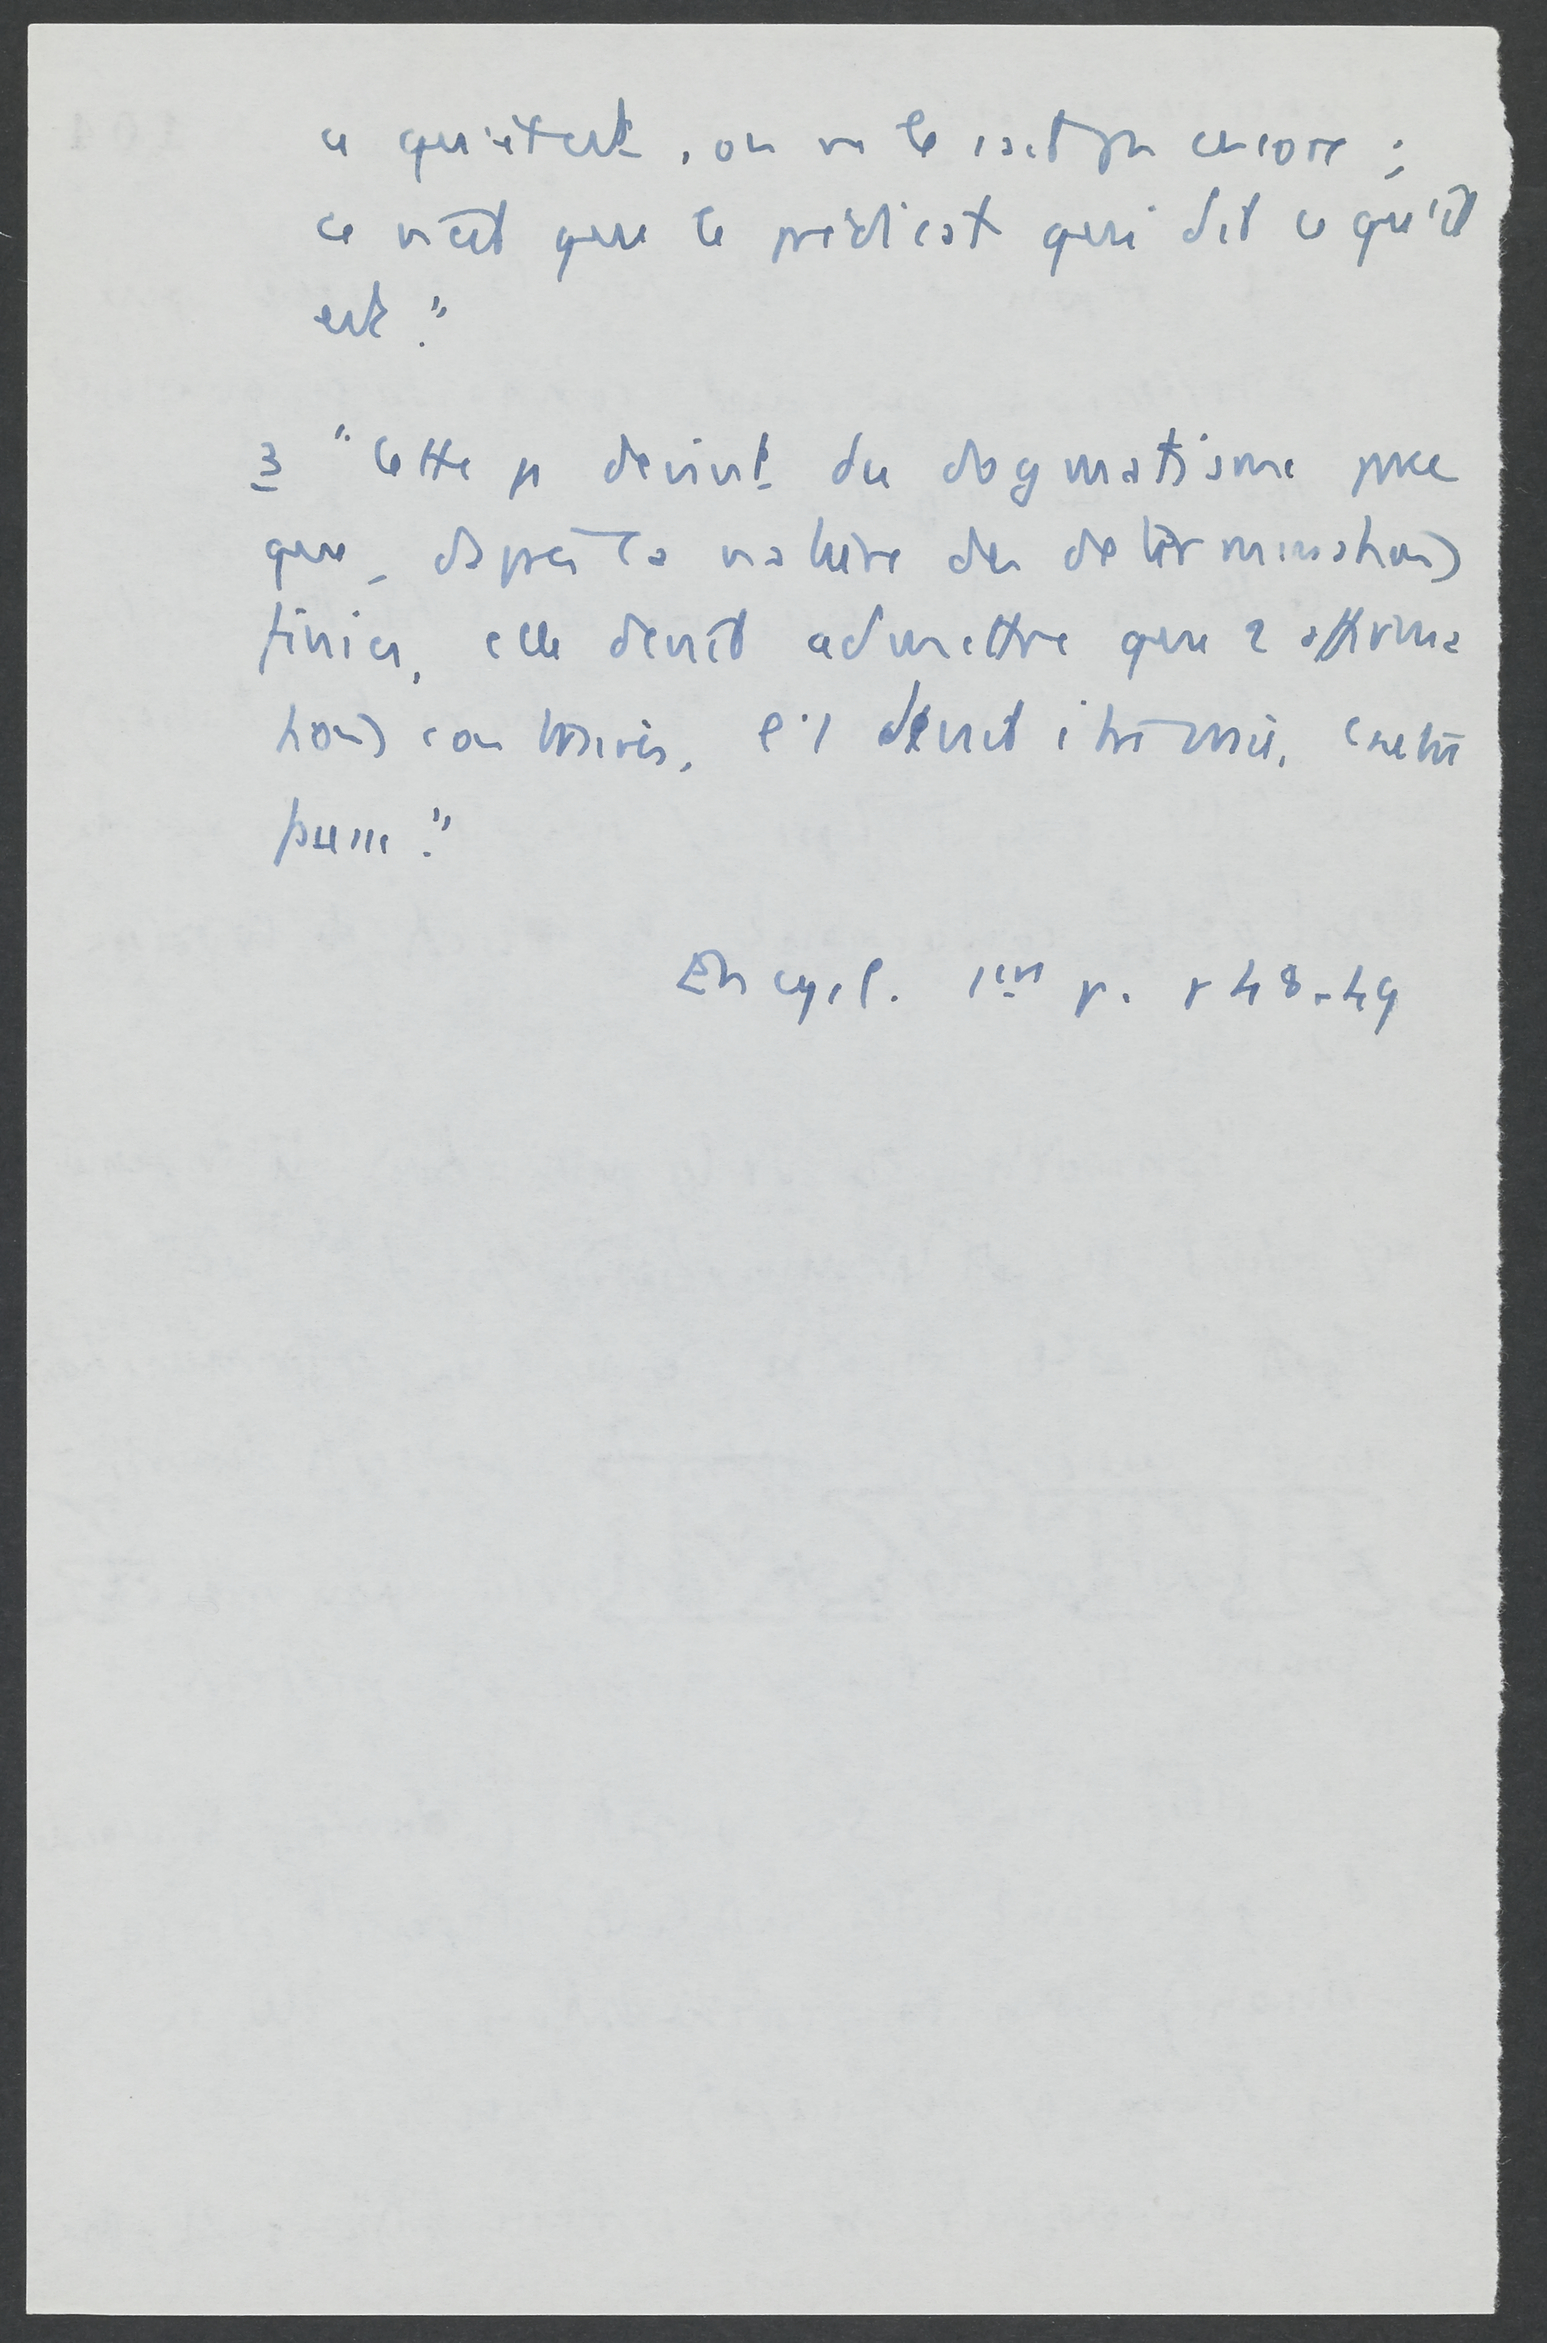 ce qu'il est, on ne le sait pas encore ;
ce n'est que le prédicat qui dit ce qu'il
est."
3 "Cette φ devint du dogmatisme pce
que, d'après la nature des déterminations
finies, elle devait admettre que 2 affirma
tions contraires, l'1 devait être vraie, l'autre
fausse."
Encycl. 1ère p. § 48-49